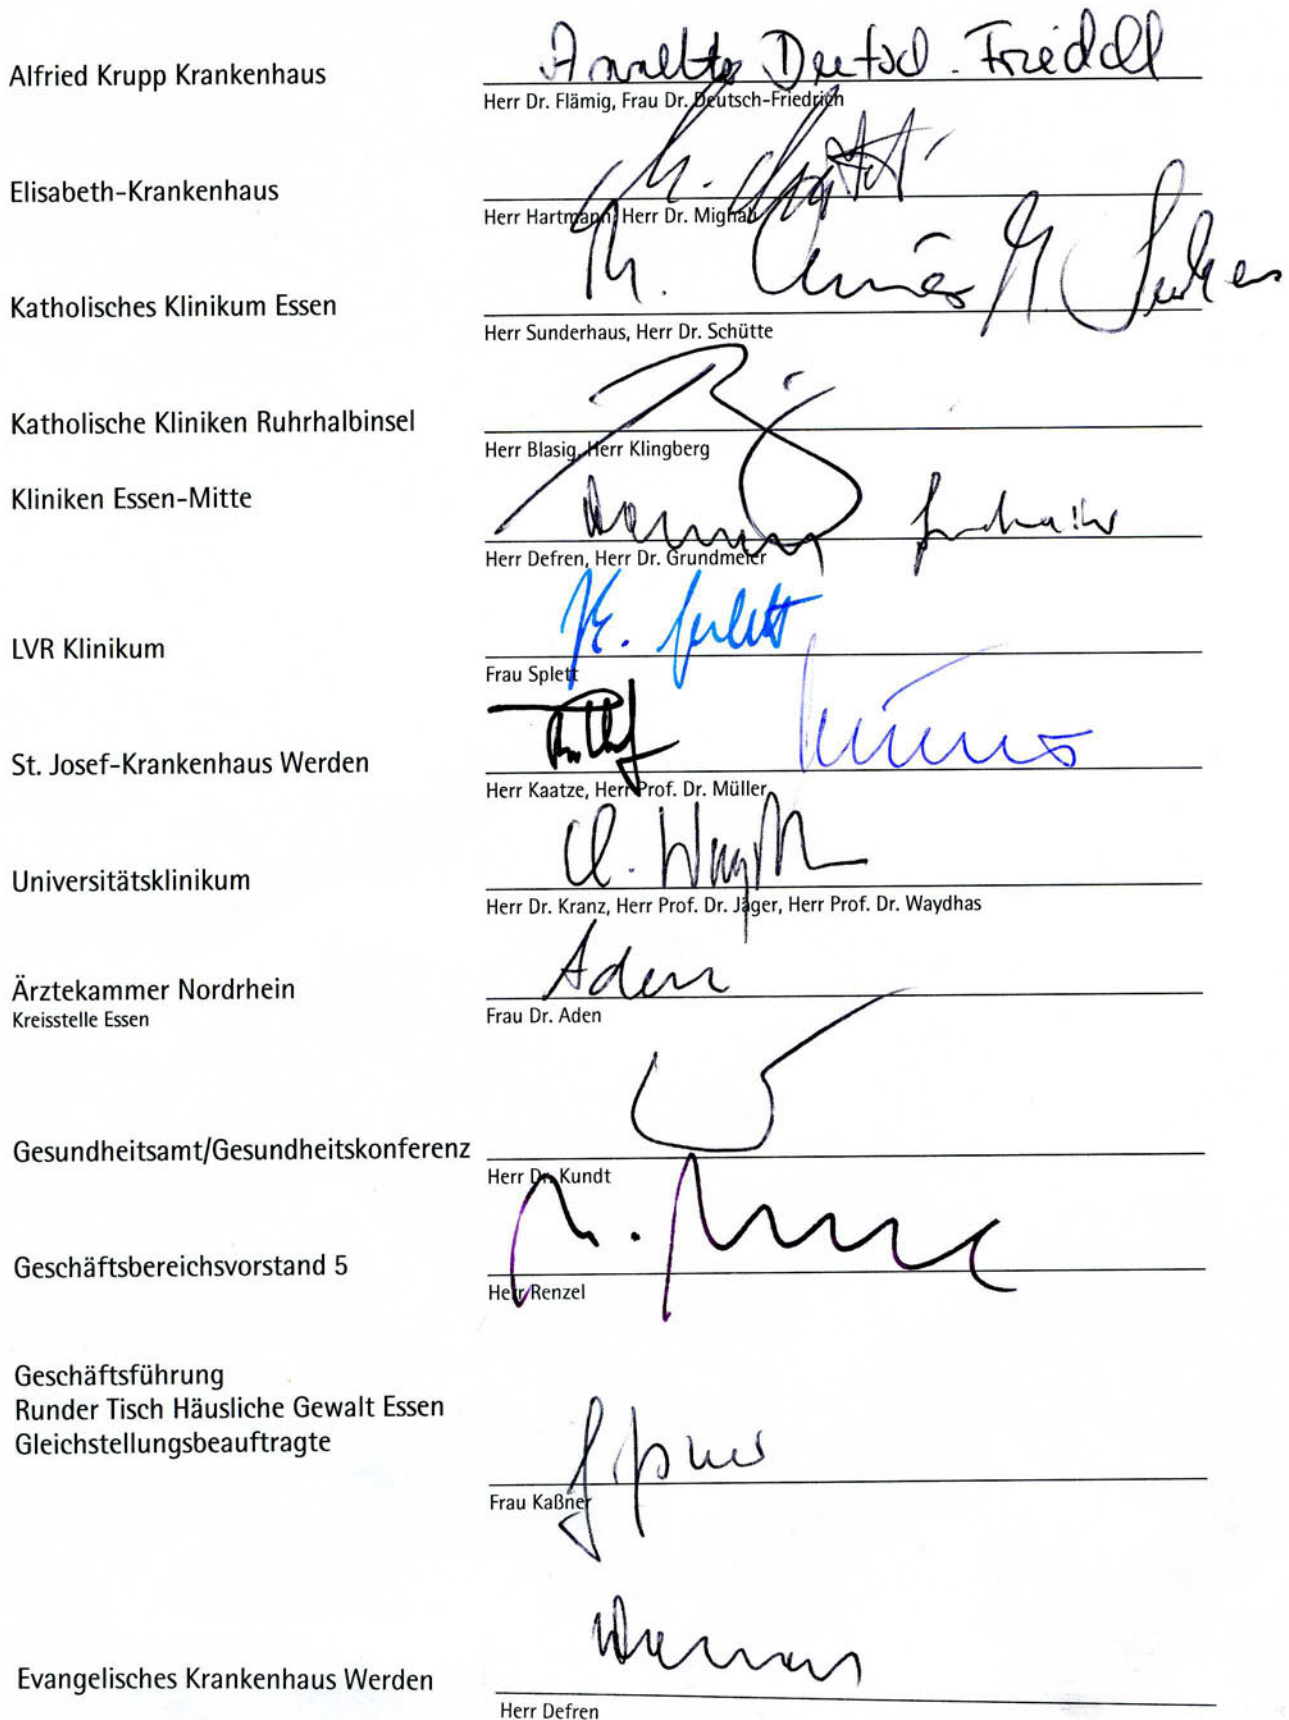 Annette Deutsch-Friedrich
Alfried Krupp Krankenhaus
Herr Dr. Flämig, Frau Dr. Deutsch-Friedrich
Elisabeth-Krankenhaus
Herr Hartmann, Herr Dr. Mighali
Katholisches Klinikum Essen
Herr Sunderhaus, Herr Dr. Schütte
Katholische Kliniken Ruhrhalbinsel
Herr Blasig, Herr Klingberg
Kliniken Essen-Mitte
Herr Defren, Herr Dr. Grundmeier
K. Splett
LVR Klinikum
Frau Splett
St. Josef-Krankenhaus Werden
Herr Kaatze, Herr Prof. Dr. Müller
Universitätsklinikum
Herr Dr. Kranz, Herr Prof. Dr. Jäger, Herr Prof. Dr. Waydhas
Aden
Ärztekammer Nordrhein
Kreisstelle Essen
Frau Dr. Aden
Gesundheitsamt/Gesundheitskonferenz
Herr Dr. Kundt
Geschäftsbereichsvorstand 5
Herr Renzel
Geschäftsführung
Runder Tisch Häusliche Gewalt Essen
Gleichstellungsbeauftragte
Frau Kaßner
Evangelisches Krankenhaus Werden
Herr Defren